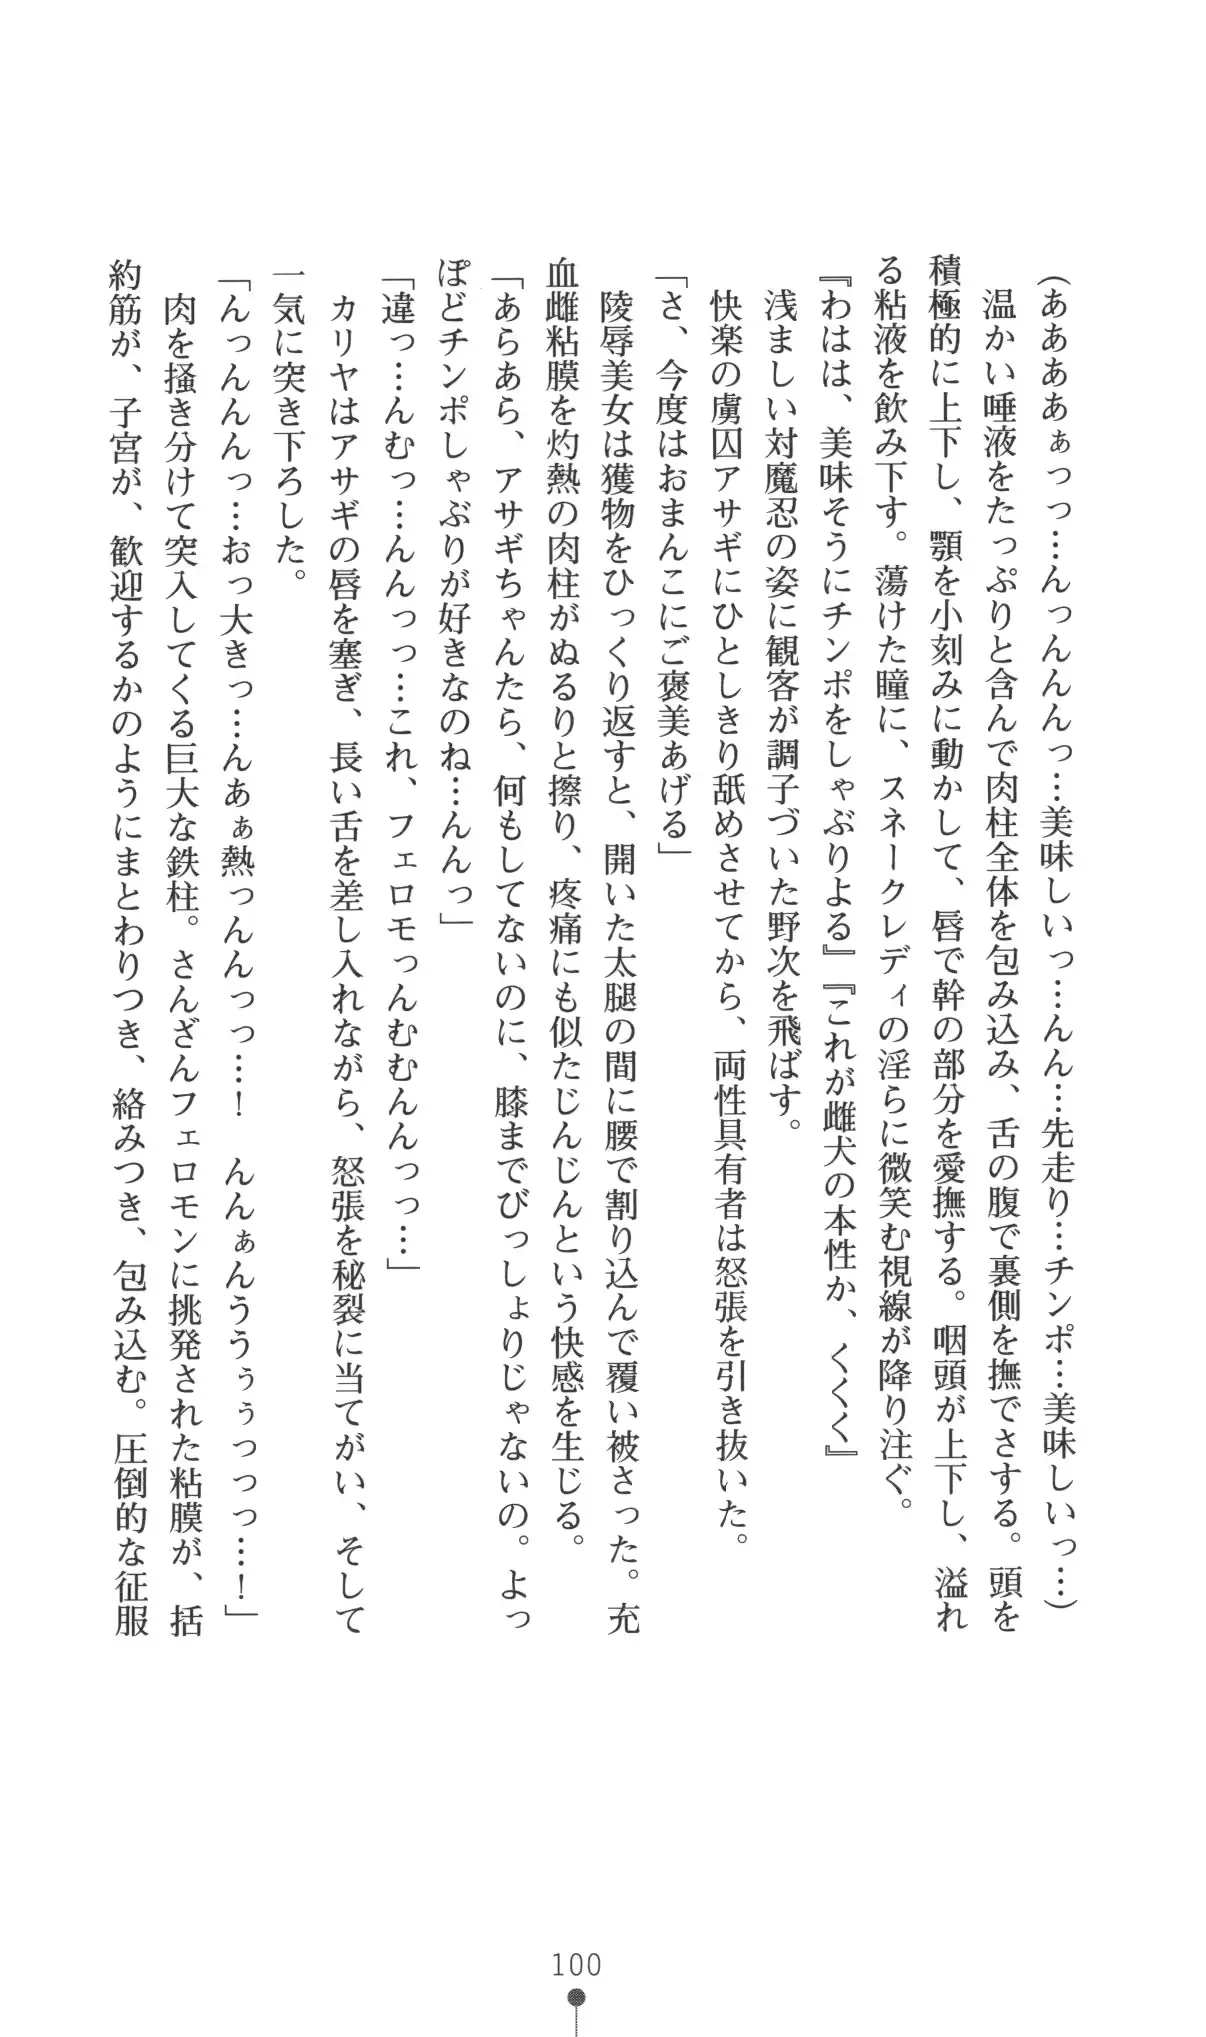 (あああぁっっ…んっんんっ…美味しいっ…んん…先走り…チンポ…美味しいっ…)
温かい唾液をたっぷりと含んで肉柱全体を包み込み、舌の腹で裏側を撫でさする。頭を
積極的に上下し、顎を小刻みに動かして、唇で幹の部分を愛撫する。咽頭が上下し、溢れ
る粘液を飲み下す。蕩けた瞳に、スネークレディの淫らに微笑む視線が降り注ぐ。
『わはは、美味そうにチンポをしゃぶりよる』『これが雌犬の本性か、くくく』
浅ましい対魔忍の姿に観客が調子づいた野次を飛ばす。
快楽の虜囚アサギにひとしきり舐めさせてから、両性具有者は怒張を引き抜いた。
「さ、今度はおまんこにご褒美あげる」
陵辱美女は獲物をひっくり返すと、開いた太腿の間に腰で割り込んで覆い被さった。充
血雌粘膜を灼熱の肉柱がぬるりと擦り、疼痛にも似たじんじんという快感を生じる。
「あらあら、アサギちゃんたら、何もしてないのに、膝までびっしょりじゃないの。よっ
ぽどチンポしゃぶりが好きなのね…んんっ」
「違っ…んむっ…んんっっ…これ、フェロモっんむむんんっっ…」
カリヤはアサギの唇を塞ぎ、長い舌を差し入れながら、怒張を秘裂に当てがい、そして
一気に突き下ろした。
「んっんんんっ…おっ大きっ…んあぁ熱っんんっっ…！　んんぁんううぅぅっっっ…！」
肉を掻き分けて突入してくる巨大な鉄柱。さんざんフェロモンに挑発された粘膜が、括
約筋が、子宮が、歓迎するかのようにまとわりつき、絡みつき、包み込む。圧倒的な征服
100